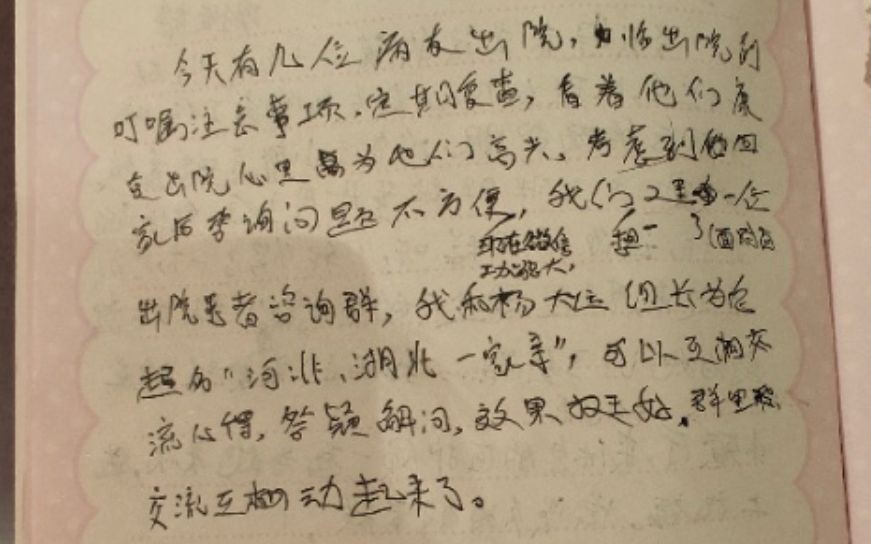 今天有几位病友出院，临出院前
叮嘱注意事项、定期复查，看着他们康
复出院心里为他们高兴。考虑到他们回
家后咨询问题不方便，我们建一
现在微信 想一
功能强大，
出院患者咨询群，我和杨大位组长为它
起名"河北、湖北一家亲"，可以互相交
流心得，答疑解问，效果好，群里
交流互相动起来了。